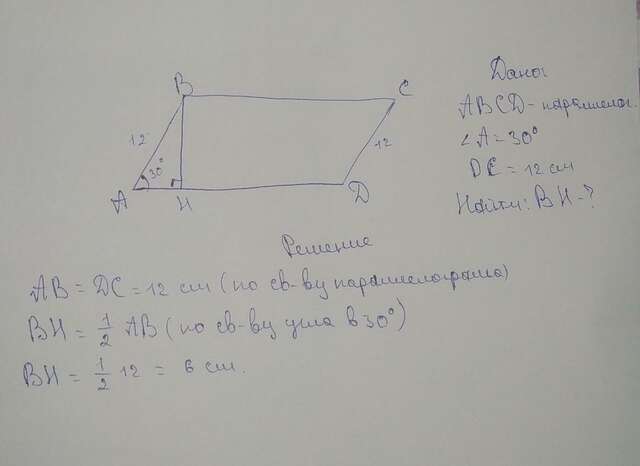 B
C
12
30°
12
A
H
D
Дано:
ABCD - параллелог.
∠A = 30°
DC = 12 см
Найти: BH - ?
Решение
AB = DC = 12 см (по св-ву параллелограмма)
BH = 1/2 AB (по св-ву угла в 30°)
BH = 1/2 12 = 6 см.